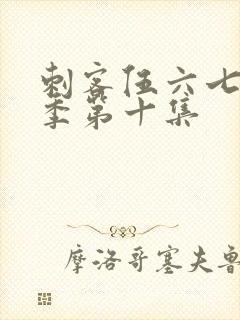 刺客伍六七
季第十集
摩洛哥塞夫鲁